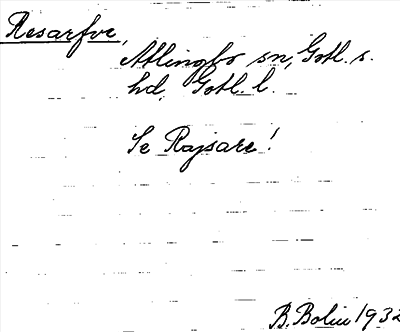 Resarfve,
Atlingbo sn, Gotl. s.
hd, Gotl. l.
Se Rajsare!
B. Bolin 1932